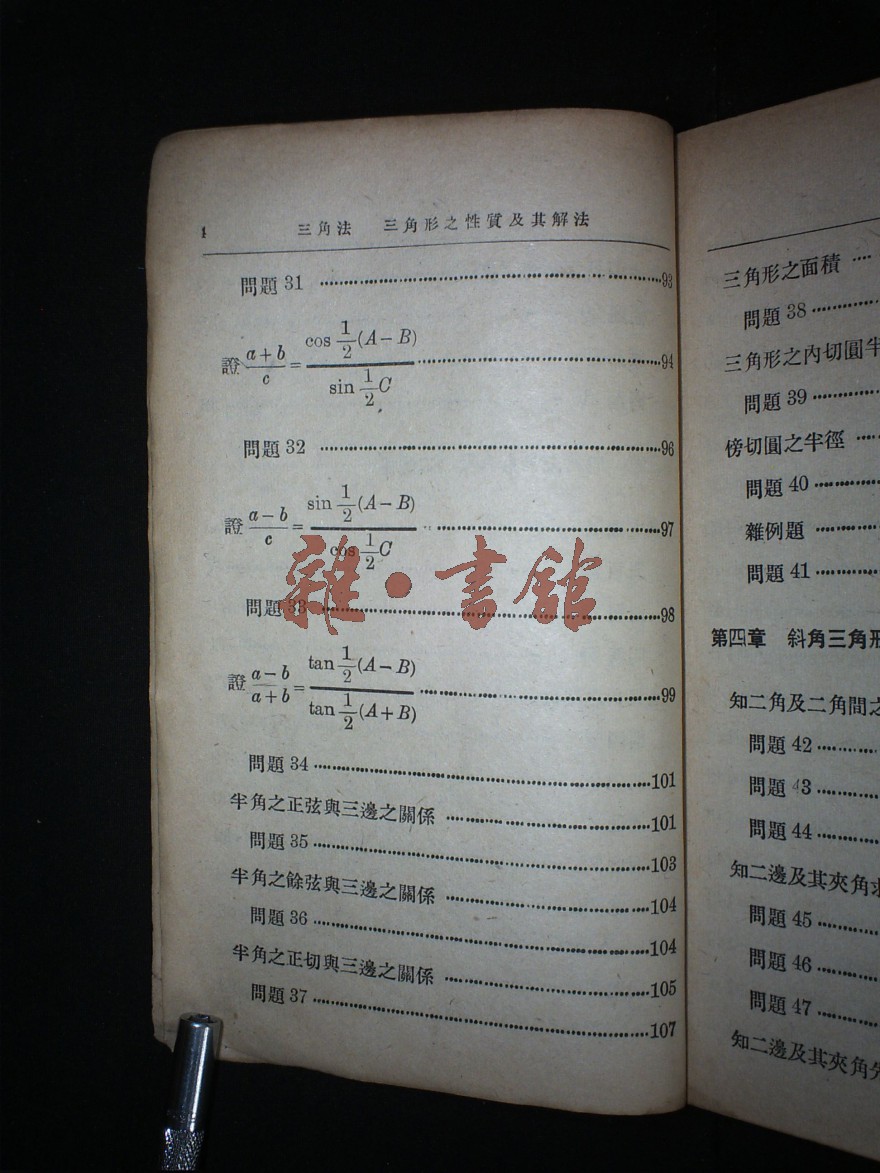 4 三角法 三角形之性質及其解法
問題31 ……93
證 (a+b)/c = cos 1/2(A−B) / sin 1/2 C ……94
問題32 ……96
證 (a−b)/c = sin 1/2(A−B) / cos 1/2 C ……97
問題33 ……98
證 (a−b)/(a+b) = tan 1/2(A−B) / tan 1/2(A+B) ……99
問題34 ……101
半角之正弦與三邊之關係 ……101
問題35 ……103
半角之餘弦與三邊之關係 ……104
問題36 ……104
半角之正切與三邊之關係 ……105
問題37 ……107
雜·書館
三角形之面積 ……
問題38 ……
三角形之內切圓半
問題39 ……
傍切圓之半徑 ……
問題40 ……
雜例題 ……
問題41 ……
第四章 斜角三角形
知二角及二角間之
問題42 ……
問題43 ……
問題44 ……
知二邊及其夾角求
問題45 ……
問題46 ……
問題47 ……
知二邊及其夾角先